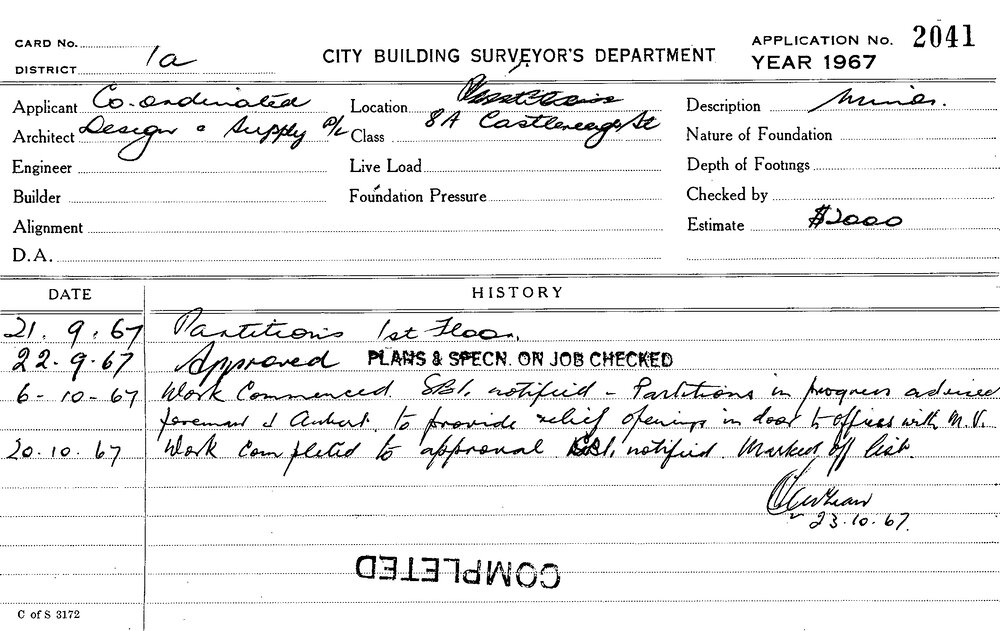 CARD No.
DISTRICT 1a
CITY BUILDING SURVEYOR'S DEPARTMENT
APPLICATION No. 2041
YEAR 1967
Applicant Co-ordinated
Architect Design & Supply P/L
Engineer
Builder
Alignment
D.A.
Location
Class 8A Castlereagh St
Live Load
Foundation Pressure
Description Minor.
Nature of Foundation
Depth of Footings
Checked by
Estimate $2000
DATE HISTORY
21. 9. 67 Partitions 1st Floor.
22. 9. 67 Approved PLANS & SPECN. ON JOB CHECKED
6 - 10 - 67 Work Commenced. notified - Partitions in progress advised
foreman & to provide relief openings in door to offices with M.V.
20. 10. 67 Work completed to approval notified. Marked off list.
23. 10. 67.
COMPLETED
C of S 3172